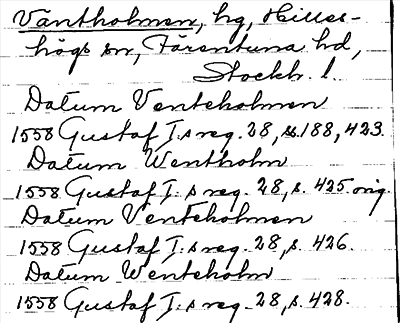 Väntholmen, hg, Hilles-
högs sn, Färentuna hd,
Stockh. l.
Datum Venteholmen
1558 Gustaf I:s reg. 28, ss. 188, 423.
Datum Wentholm
1558 Gustaf I:s reg. 28, s. 425 orig.
Datum Venteholmen
1558 Gustaf I:s reg. 28, s. 426.
Datum Wenteholm
1558 Gustaf I:s reg. 28, s. 428.